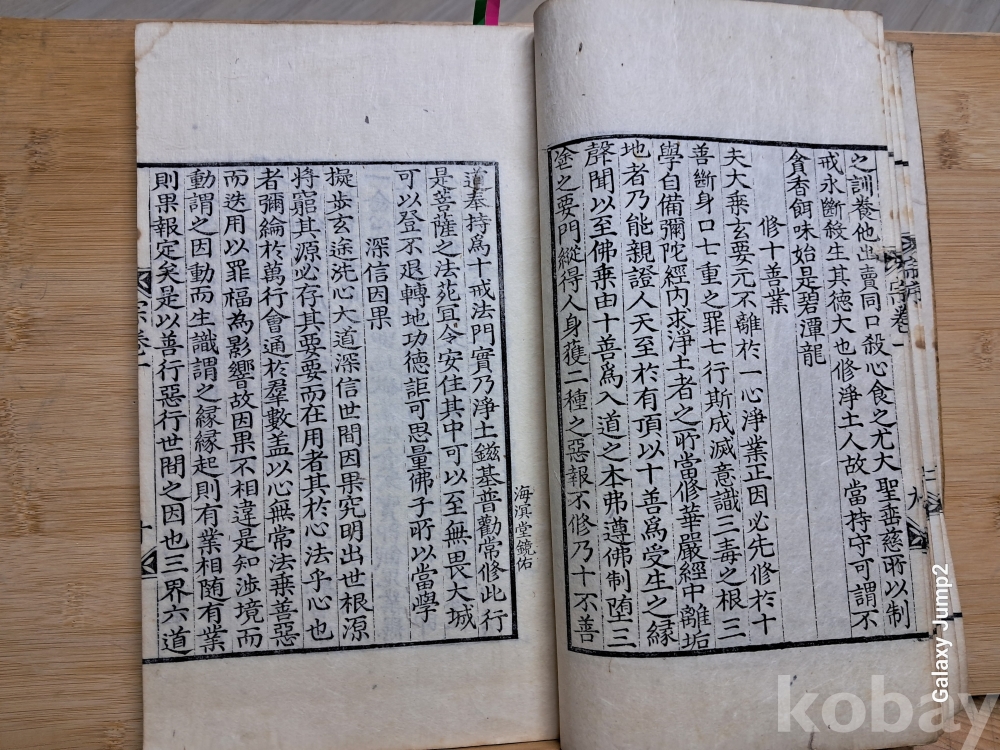 之訓養他出賣同口殺心食之尤大聖垂慈所以制
戒永斷殺生其德大也修淨土人故當持守可謂不
貪香餌味始是碧潭龍
修十善業
夫大乗玄要元不離於一心淨業正因必先修於十
善斷身口七重之罪七行斯成滅意識三毒之根三
學自備彌陀經内求淨土者之所當修華嚴經中離垢
地者乃能親證人天至於有頂以十善爲受生之緣
聲聞以至佛乗由十善爲入道之本弗遵佛制堕三
塗之要門縱得人身獲二種之惡報不修乃十不善
海濱堂鏡佑
道奉持爲十戒法門實乃淨土鎡基普勸常修此行
是菩薩之法苑宜令安住其中可以至無畏大城
可以登不退轉地功德詎可思量佛子所以當學
深信因果
擬步玄途洗心大道深信世間因果究明出世根源
将窮其源必存其要要而在用者其於心法乎心也
者彌綸於萬行會通於羣數盖以心無常法乗善惡
而迭用以罪福為影響故因果不相違是知渉境而
動謂之因動而生識謂之緣緣起則有業相随有業
則果報定矣是以善行惡行世間之因也三界六道
宗卷一
十
九
kobay
Galaxy Jump2